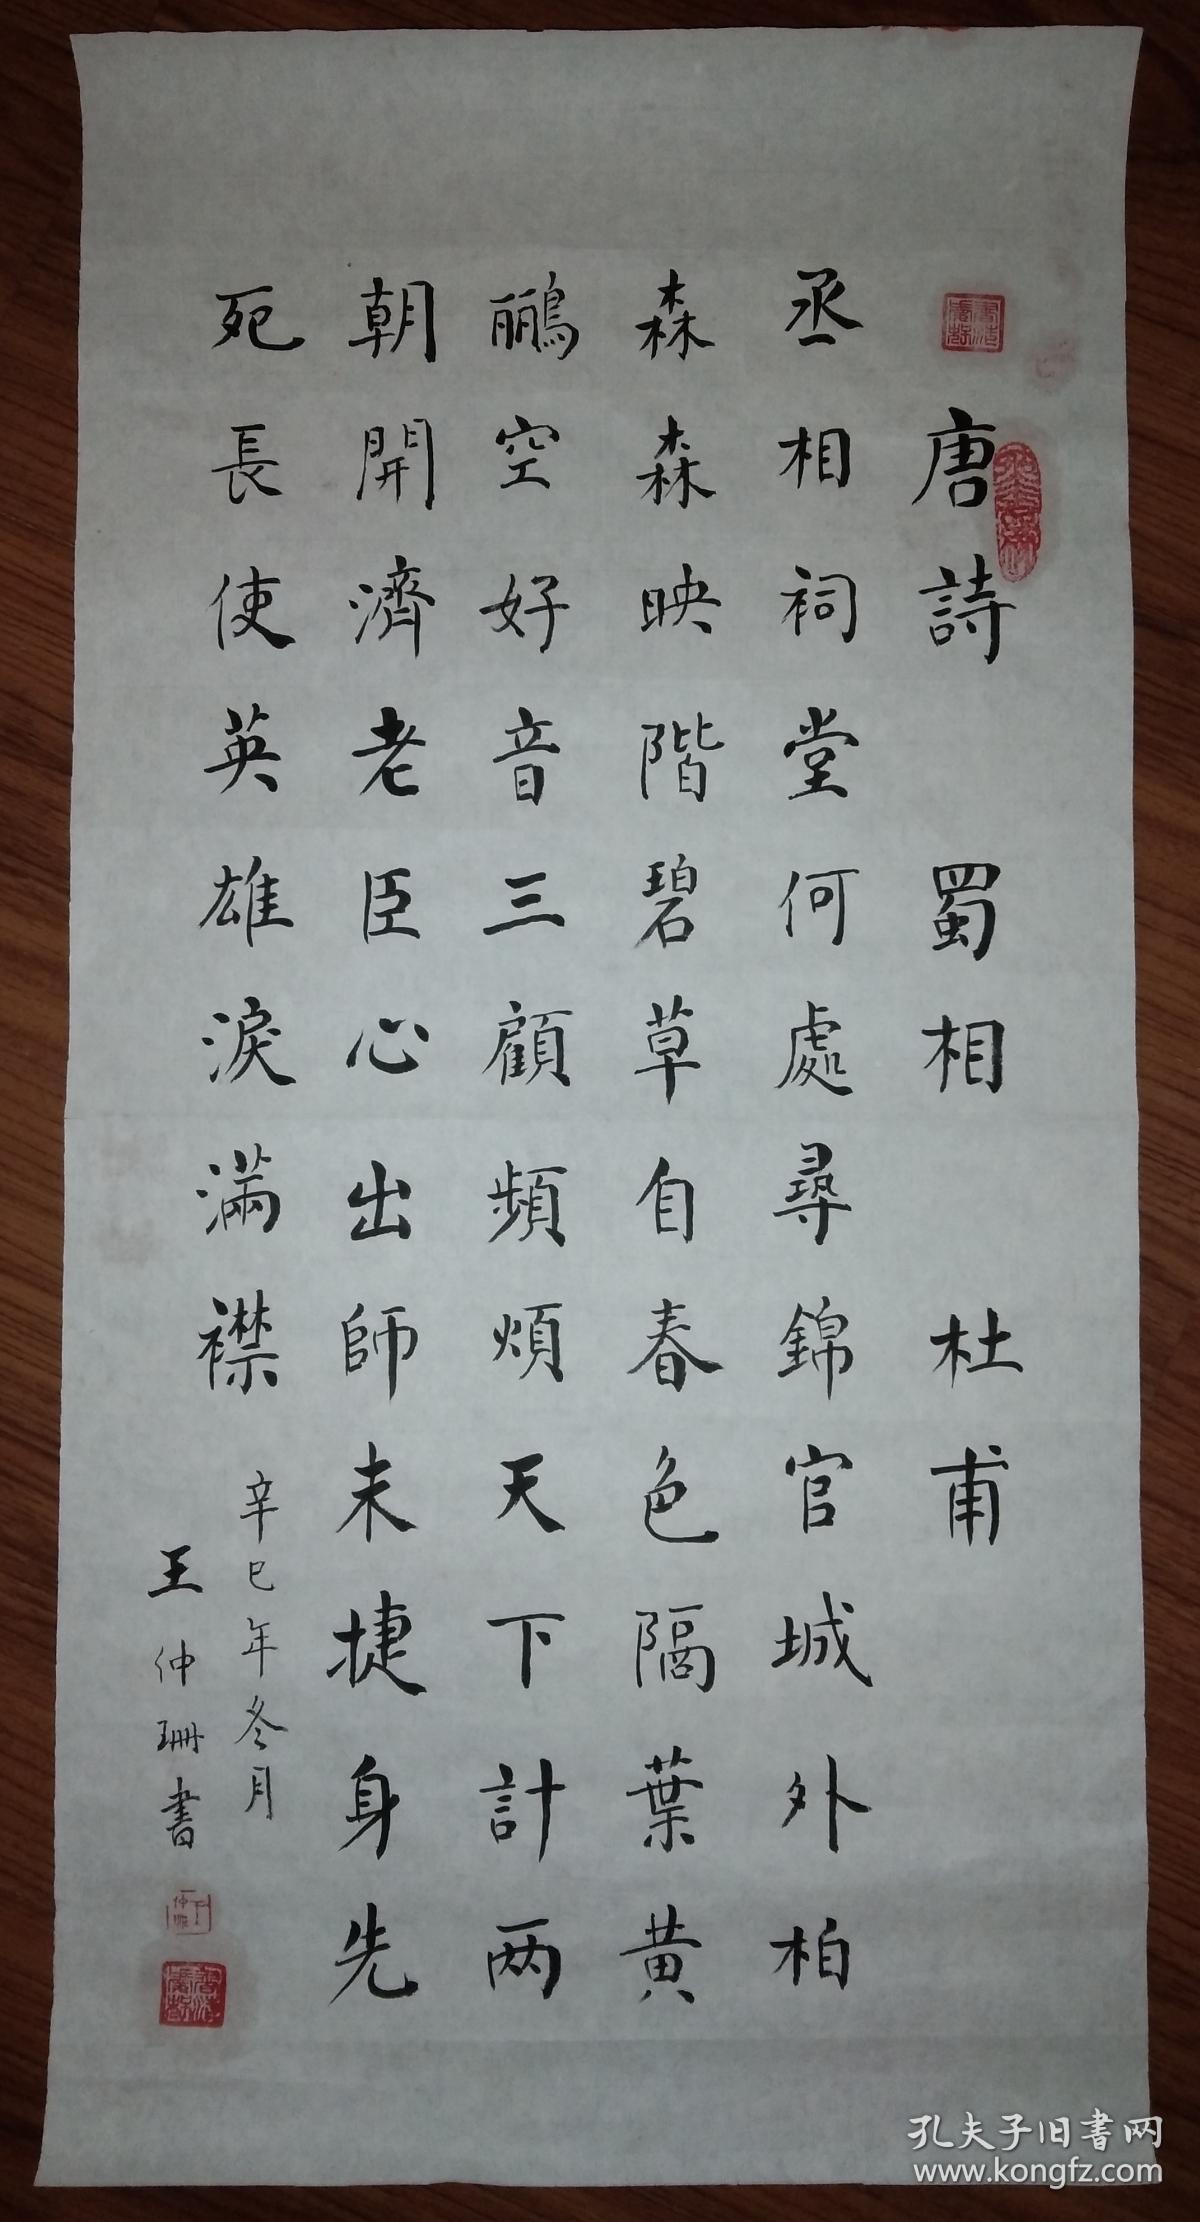 唐詩 蜀相 杜甫
丞相祠堂何處尋錦官城外柏
森森映階碧草自春色隔葉黄
鸝空好音三顧頻煩天下計两
朝開濟老臣心出師未捷身先
死長使英雄淚滿襟
辛巳年冬月
王仲珊書
孔夫子旧書网
www.kongfz.com